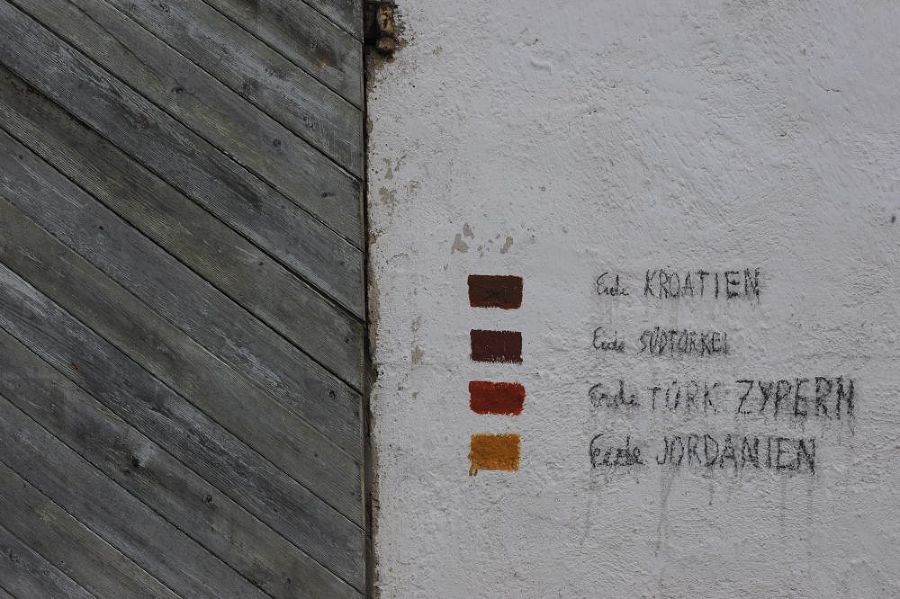 Erde KROATIEN
Erde SÜDTÜRKEI
Erde TÜRK ZYPERN
Erde JORDANIEN